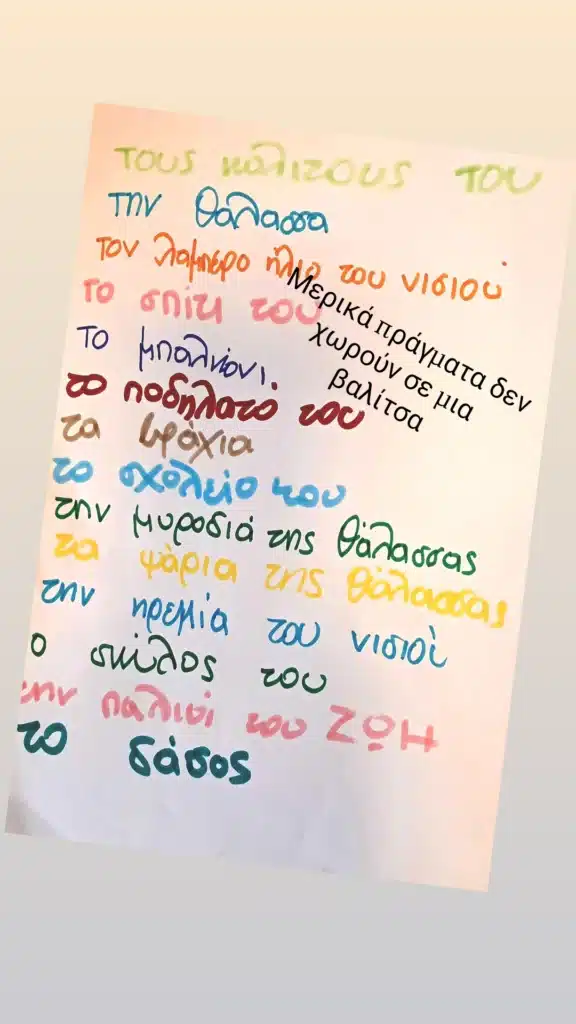 τους κόλπους του
την θάλασσα
τον λαμπερό ήλιο του νησιού
το σπίτι του
το μπαλκόνι.
το ποδήλατό του
τα βράχια
το σχολείο του
την μυροδιά της θάλασσας
τα ψάρια της θάλασσας
την ηρεμία του νισιού
ο σκύλος του
την παλιοί του ΖΩΗ
το δάσος
Μερικά πράγματα δεν
χωρούν σε μια
βαλίτσα